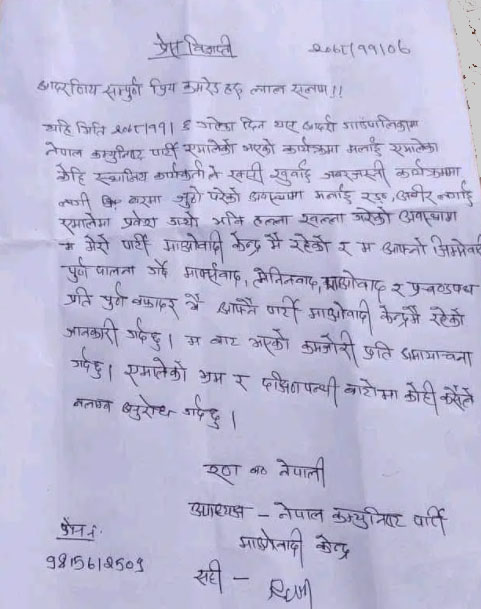 प्रेस विज्ञप्ती
२०८१/११/०६
आदरणिय सम्पुर्ण प्रिय कमरेड हरु लाल सलाम !!
यहि मिति २०८१/११/ ६ गतेका दिन यस आदर्श गाउँपालिकामा
नेपाल कम्युनिष्ट पार्टी एमालेको भएको कार्यक्रममा मलाई एमालेका
केहि स्थानिय कार्यकर्ताले रक्सी खुवाई जबरजस्ती कार्यक्रममा
लगी घरमा जुठो परेको अवस्थामा मलाई रङ, अबीर लगाई
एमालेमा प्रवेश गर्यो भनि हल्ला खल्ला गरेको अवस्थामा
म मेरो पार्टी माओवादी केन्द्र मै रहेको र म आफ्नो जिम्मेवारी
पुर्ण पालना गर्दै मार्क्सवाद, लेनिनवाद, माओवाद र प्रचण्डपथ
प्रति पुर्ण वफादार भै आफ्नै पार्टी माओवादी केन्द्रमै रहेको
जानकारी गर्दछु । म बाट भएको कमजोरी प्रति क्षमायाचना
गर्दछु । एमालेको भ्रम र दक्षिणपन्थी बाटोमा कोही कसैले
नलाग्न अनुरोध गर्दछु ।
रण बा नेपाली
अध्यक्ष - नेपाल कम्युनिष्ट पार्टी
माओवादी केन्द्र
फोन नं.
9815612509
सही -